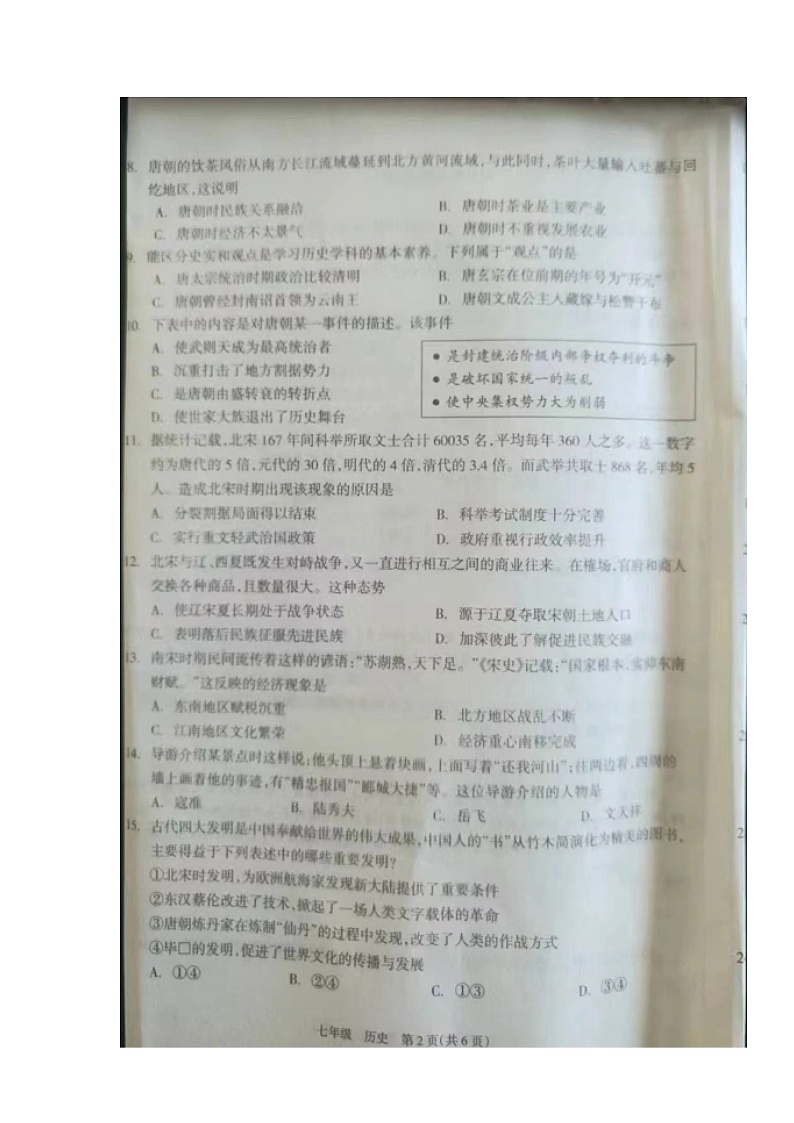 8. 唐朝的饮茶风俗从南方长江流域蔓延到北方黄河流域,与此同时,茶叶大量输入吐蕃与回
纥地区,这说明
A. 唐朝时民族关系融洽 B. 唐朝时茶业是主要产业
C. 唐朝时经济不太景气 D. 唐朝时不重视发展农业
9. 能区分史实和观点是学习历史学科的基本素养。下列属于“观点”的是
A. 唐太宗统治时期政治比较清明 B. 唐玄宗在位前期的年号为“开元”
C. 唐朝曾经封南诏首领为云南王 D. 唐朝文成公主入藏嫁与松赞干布
10. 下表中的内容是对唐朝某一事件的描述。该事件
A. 使武则天成为最高统治者
B. 沉重打击了地方割据势力
C. 是唐朝由盛转衰的转折点
D. 使世家大族退出了历史舞台
● 是封建统治阶级内部争权夺利的斗争
● 是破坏国家统一的叛乱
● 使中央集权势力大为削弱
11. 据统计记载,北宋 167 年间科举所取文士合计 60035 名,平均每年 360 人之多。这一数字
约为唐代的 5 倍,元代的 30 倍,明代的 4 倍,清代的 3.4 倍。而武举共取士 868 名,年均 5
人。造成北宋时期出现该现象的原因是
A. 分裂割据局面得以结束 B. 科举考试制度十分完善
C. 实行重文轻武治国政策 D. 政府重视行政效率提升
12. 北宋与辽、西夏既发生对峙战争,又一直进行相互之间的商业往来。在榷场,官府和商人
交换各种商品,且数量很大。这种态势
A. 使辽宋夏长期处于战争状态 B. 源于辽夏夺取宋朝土地人口
C. 表明落后民族征服先进民族 D. 加深彼此了解促进民族交融
13. 南宋时期民间流传着这样的谚语:“苏湖熟,天下足。”《宋史》记载:“国家根本,实仰东南
财赋。”这反映的经济现象是
A. 东南地区赋税沉重 B. 北方地区战乱不断
C. 江南地区文化繁荣 D. 经济重心南移完成
14. 导游介绍某景点时这样说:他头顶上悬着块画,上面写着“还我河山”;往两边看,四周的
墙上画着他的事迹,有“精忠报国”“郾城大捷”等。这位导游介绍的人物是
A. 寇准 B. 陆秀夫 C. 岳飞 D. 文天祥
15. 古代四大发明是中国奉献给世界的伟大成果,中国人的“书”从竹木简演化为精美的图书,
主要得益于下列表述中的哪些重要发明?
①北宋时发明,为欧洲航海家发现新大陆提供了重要条件
②东汉蔡伦改进了技术,掀起了一场人类文字载体的革命
③唐朝炼丹家在炼制“仙丹”的过程中发现,改变了人类的作战方式
④毕□的发明,促进了世界文化的传播与发展
A. ①④ B. ②④ C. ①③ D. ③④
七年级 历史 第2页(共6页)